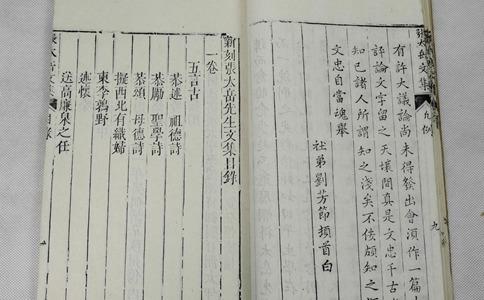 張太岳文集 凡例 九
有許大議論尚未得發出會須作一篇大
評論文字留之天壤間真是文忠千古
知已諸人所謂知之淺矣不佞頗知之
文忠自當魂舉
社弟劉芳節頓首白
新刻張太岳先生文集目錄
一卷
五言古
恭述 祖德詩
恭勵 聖學詩
恭頌 母德詩
擬西北有織婦
李野
述懷
送高廉泉之任
張太岳文集 目錄